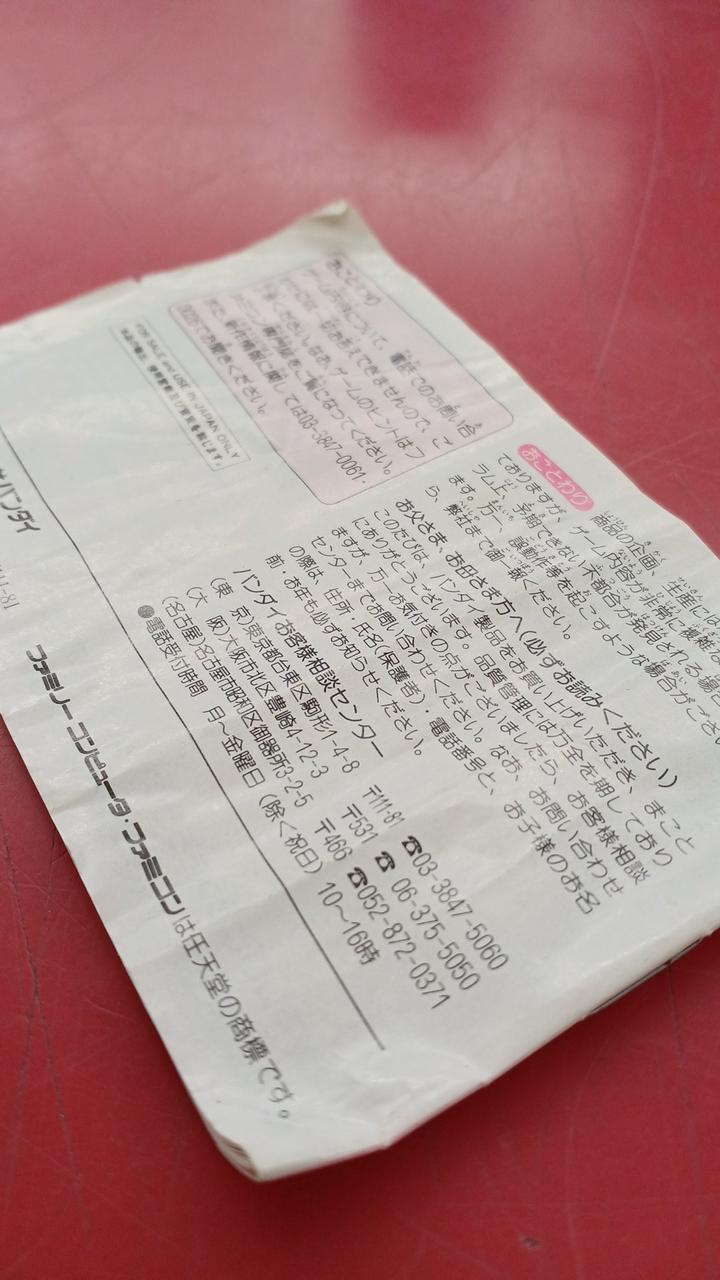 おことわり
商品の企画、生産には
ゲーム内容が非常に複雑な
ておりますが、
ラム上、予期できない不都合が発見される場
ます。万一、誤動作等を起こすような場合がござ
ら、弊社まで御一報ください。
お父さま、お母さま方へ(必ずお読みください)
このたびは、バンダイ製品をお買い上げいただき、まこと
にありがとうございます。品質管理には万全を期しており
ますが、万一お気付きの点がございましたら、お客様相談
センターまでお問い合わせください。なお、お問い合わせ
の際は、住所・氏名(保護者)・電話番号と、お子様のお名
前・お年も必ずお知らせください。
バンダイお客様相談センター
(東 京)東京都台東区駒形1-4-8 〒111-81 ☎03-3847-5060
(大 阪)大阪市北区豊崎4-12-3 〒531 ☎06-375-5050
(名古屋)名古屋市昭和区御器所3-2-5 〒466 ☎052-872-0371
●電話受付時間 月〜金曜日(除く祝日)10〜16時
おことわり
ゲーム内容について、電話でのお問い合
わせには一切お答えできませんので、ご
了承ください。なお、ゲームのヒントはフ
ァミコン専門誌をご覧になってください。
また、新作情報に関しては03-3847-0061・
FOR SALE and USE IN JAPAN ONLY
本品の輸出、使用営業及び賃貸を禁じます。
バンダイ
ファミリーコンピュータ・ファミコンは任天堂の商標です。